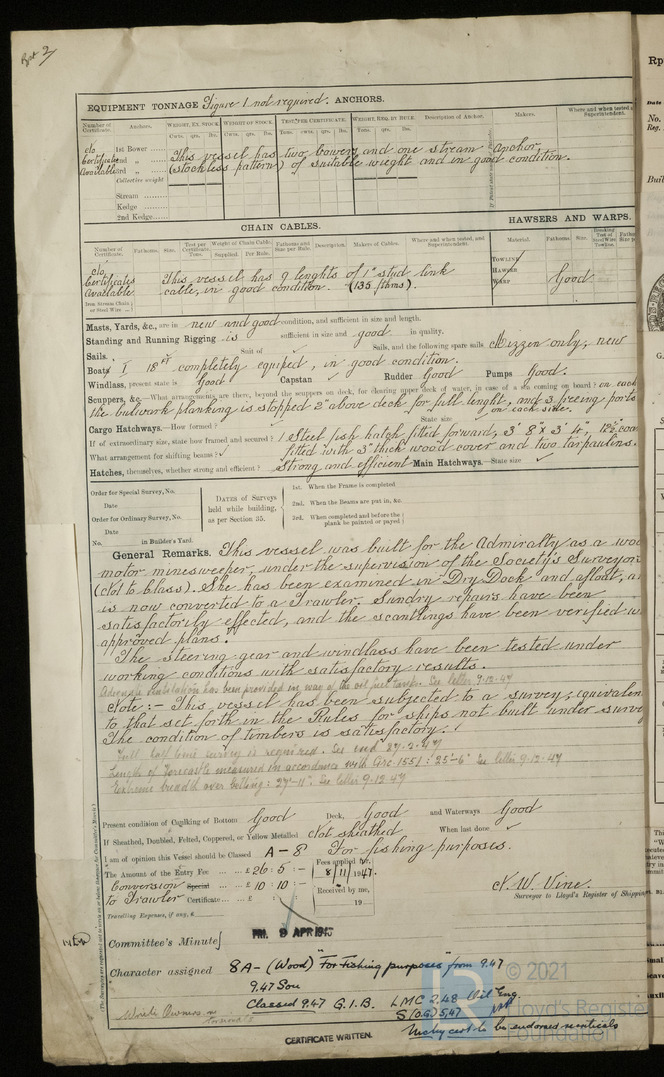 Rpt 2
EQUIPMENT TONNAGE Figure 1 not required. ANCHORS.
Number of Certificate. Anchors. WEIGHT, EX. STOCK WEIGHT OF STOCK. TEST PER CERTIFICATE. WEIGHT, REQ. BY RULE. Description of Anchor. Makers. Where and when tested & Superintendent.
Cwts. qrs. lbs. Cwts. qrs. lbs. Tons. cwts. qrs. lbs. Cwts. qrs. lbs.
No Certificates Available
1st Bower
2nd "
3rd "
Collective weight
Stream
Kedge
2nd Kedge
This vessel has two bowers and one stream anchor,
(stockless pattern) of suitable wieght and in good condition.
CHAIN CABLES. HAWSERS AND WARPS.
Number of Certificate. Fathoms. Size. Test per Certificate. Weight of Chain Cable. Supplied. Per Rule. Fathoms and Size per Rule. Description. Makers of Cables. Where and when tested, and Superintendent.
Material. Fathoms. Size. Breaking Test of Steel Wire Towline.
No Certificates Available.
This vessel has 9 lenghts of 1" stud link
cable, in good condition. (135 fthms).
Iron Stream Chain or Steel Wire
TOWLINE
HAWSER
WARP
Good
Masts, Yards, &c., are in new and good condition, and sufficient in size and length.
Standing and Running Rigging is sufficient in size and good in quality.
Sails. Suit of Sails, and the following spare sails Mizzen only; new
Boats 1 18 FT completely equiped, in good condition.
Windlass, present state is Good Capstan Rudder Good Pumps Good.
Scuppers, &c.—What arrangements are there, beyond the scuppers on deck, for clearing upper deck of water, in case of a sea coming on board? on each
the bulwark planking is stopped 2" above deck for full lenght, and 3 freeing ports
on each side.
Cargo Hatchways.—How formed? State size
If of extraordinary size, state how framed and secured? 1 Steel fish hatch fitted forward, 3' 8" x 3' 4"
What arrangement for shifting beams? fitted with 3" thick wood cover and two tarpaulins.
Hatches, themselves, whether strong and efficient? Strong and efficient Main Hatchways.—State size
Order for Special Survey, No.
Date
Order for Ordinary Survey, No.
Date
No. in Builder's Yard.
DATES of Surveys held while building, as per Section 35.
1st. When the Frame is completed
2nd. When the Beams are put in, &c.
3rd. When completed and before the plank be painted or payed
General Remarks. This vessel was built for the Admiralty as a
motor minesweeper, under the supervision of the Society's Surveyors
(Not to Class). She has been examined in Dry Dock and afloat,
is now converted to a Trawler. Sundry repairs have been
satisfactorily effected, and the scantlings have been verified
approved plans.
The steering gear and windlass have been tested under
working conditions with satisfactory results.
Adequate ventilation has been provided in way of the oil fuel tanks. See letter 9.12.47
Note:- This vessel has been subjected to a survey, equivalen
to that set forth in the Rules for ships not built under survey
The condition of timbers is satisfactory.
Full half time survey is required. See end 27.2.47
Length of Forecastle measured in accordance with Circ. 1551: 25'-6" See letter 9.12.47
Extreme breadth over belting: 27'-11". See letter 9.12.47
Present condition of Caulking of Bottom Good Deck, Good and Waterways Good
If Sheathed, Doubled, Felted, Coppered, or Yellow Metalled Not sheathed When last done
I am of opinion this Vessel should be Classed A-8 For fishing purposes.
The Amount of the Entry Fee £26:5:- Fees applied for, 8/11/1947.
Conversion Special £10:10:- Received by me,
to Trawler Certificate £ : : 19
Travelling Expenses, if any, £
N. W. Vine
Surveyor to Lloyd's Register of Shipping
Committee's Minute
FRI. 9 APR 194
Character assigned 8A- (Wood) "For Fishing purposes" from 9.47
9.47 Sou
Classed 9.47 G.I.B. LMC 2.48 Oil Eng.
S(O.G) 5.47
Mchy cert to be endorsed
Write Owners
CERTIFICATE WRITTEN.
© 2021
Lloyd's Register
Foundation